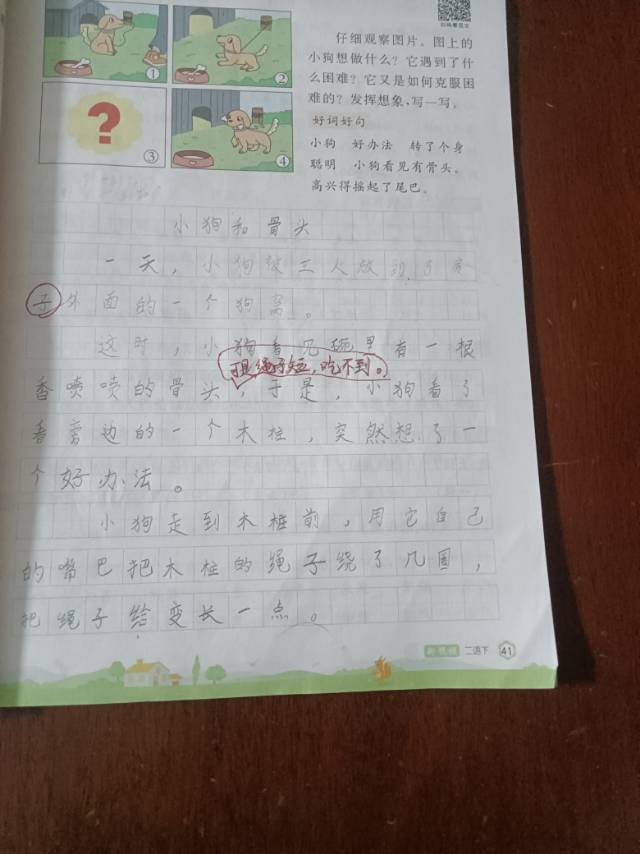 扫码看范文
仔细观察图片。图上的
小狗想做什么？它遇到了什
么困难？它又是如何克服困
难的？发挥想象，写一写。
好词好句
小狗 好办法 转了个身
聪明 小狗看见有骨头。
高兴得摇起了尾巴。
①
②
?
③
④
小狗和骨头
一天，小狗被主人放到了房
子外面的一个狗窝。
这时，小狗看见碗里有一根
但绳子短，吃不到。
香喷喷的骨头，于是，小狗看了
看旁边的一个木桩，突然想了一
个好办法。
小狗走到木桩前，用它自己
的嘴巴把木桩的绳子绕了几圈，
把绳子给变长一点。
二语下 41